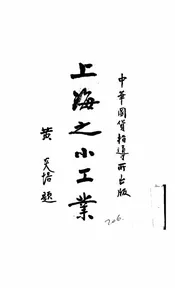 中華國貨指導所出版
上海之小工業
黃炎培題
206